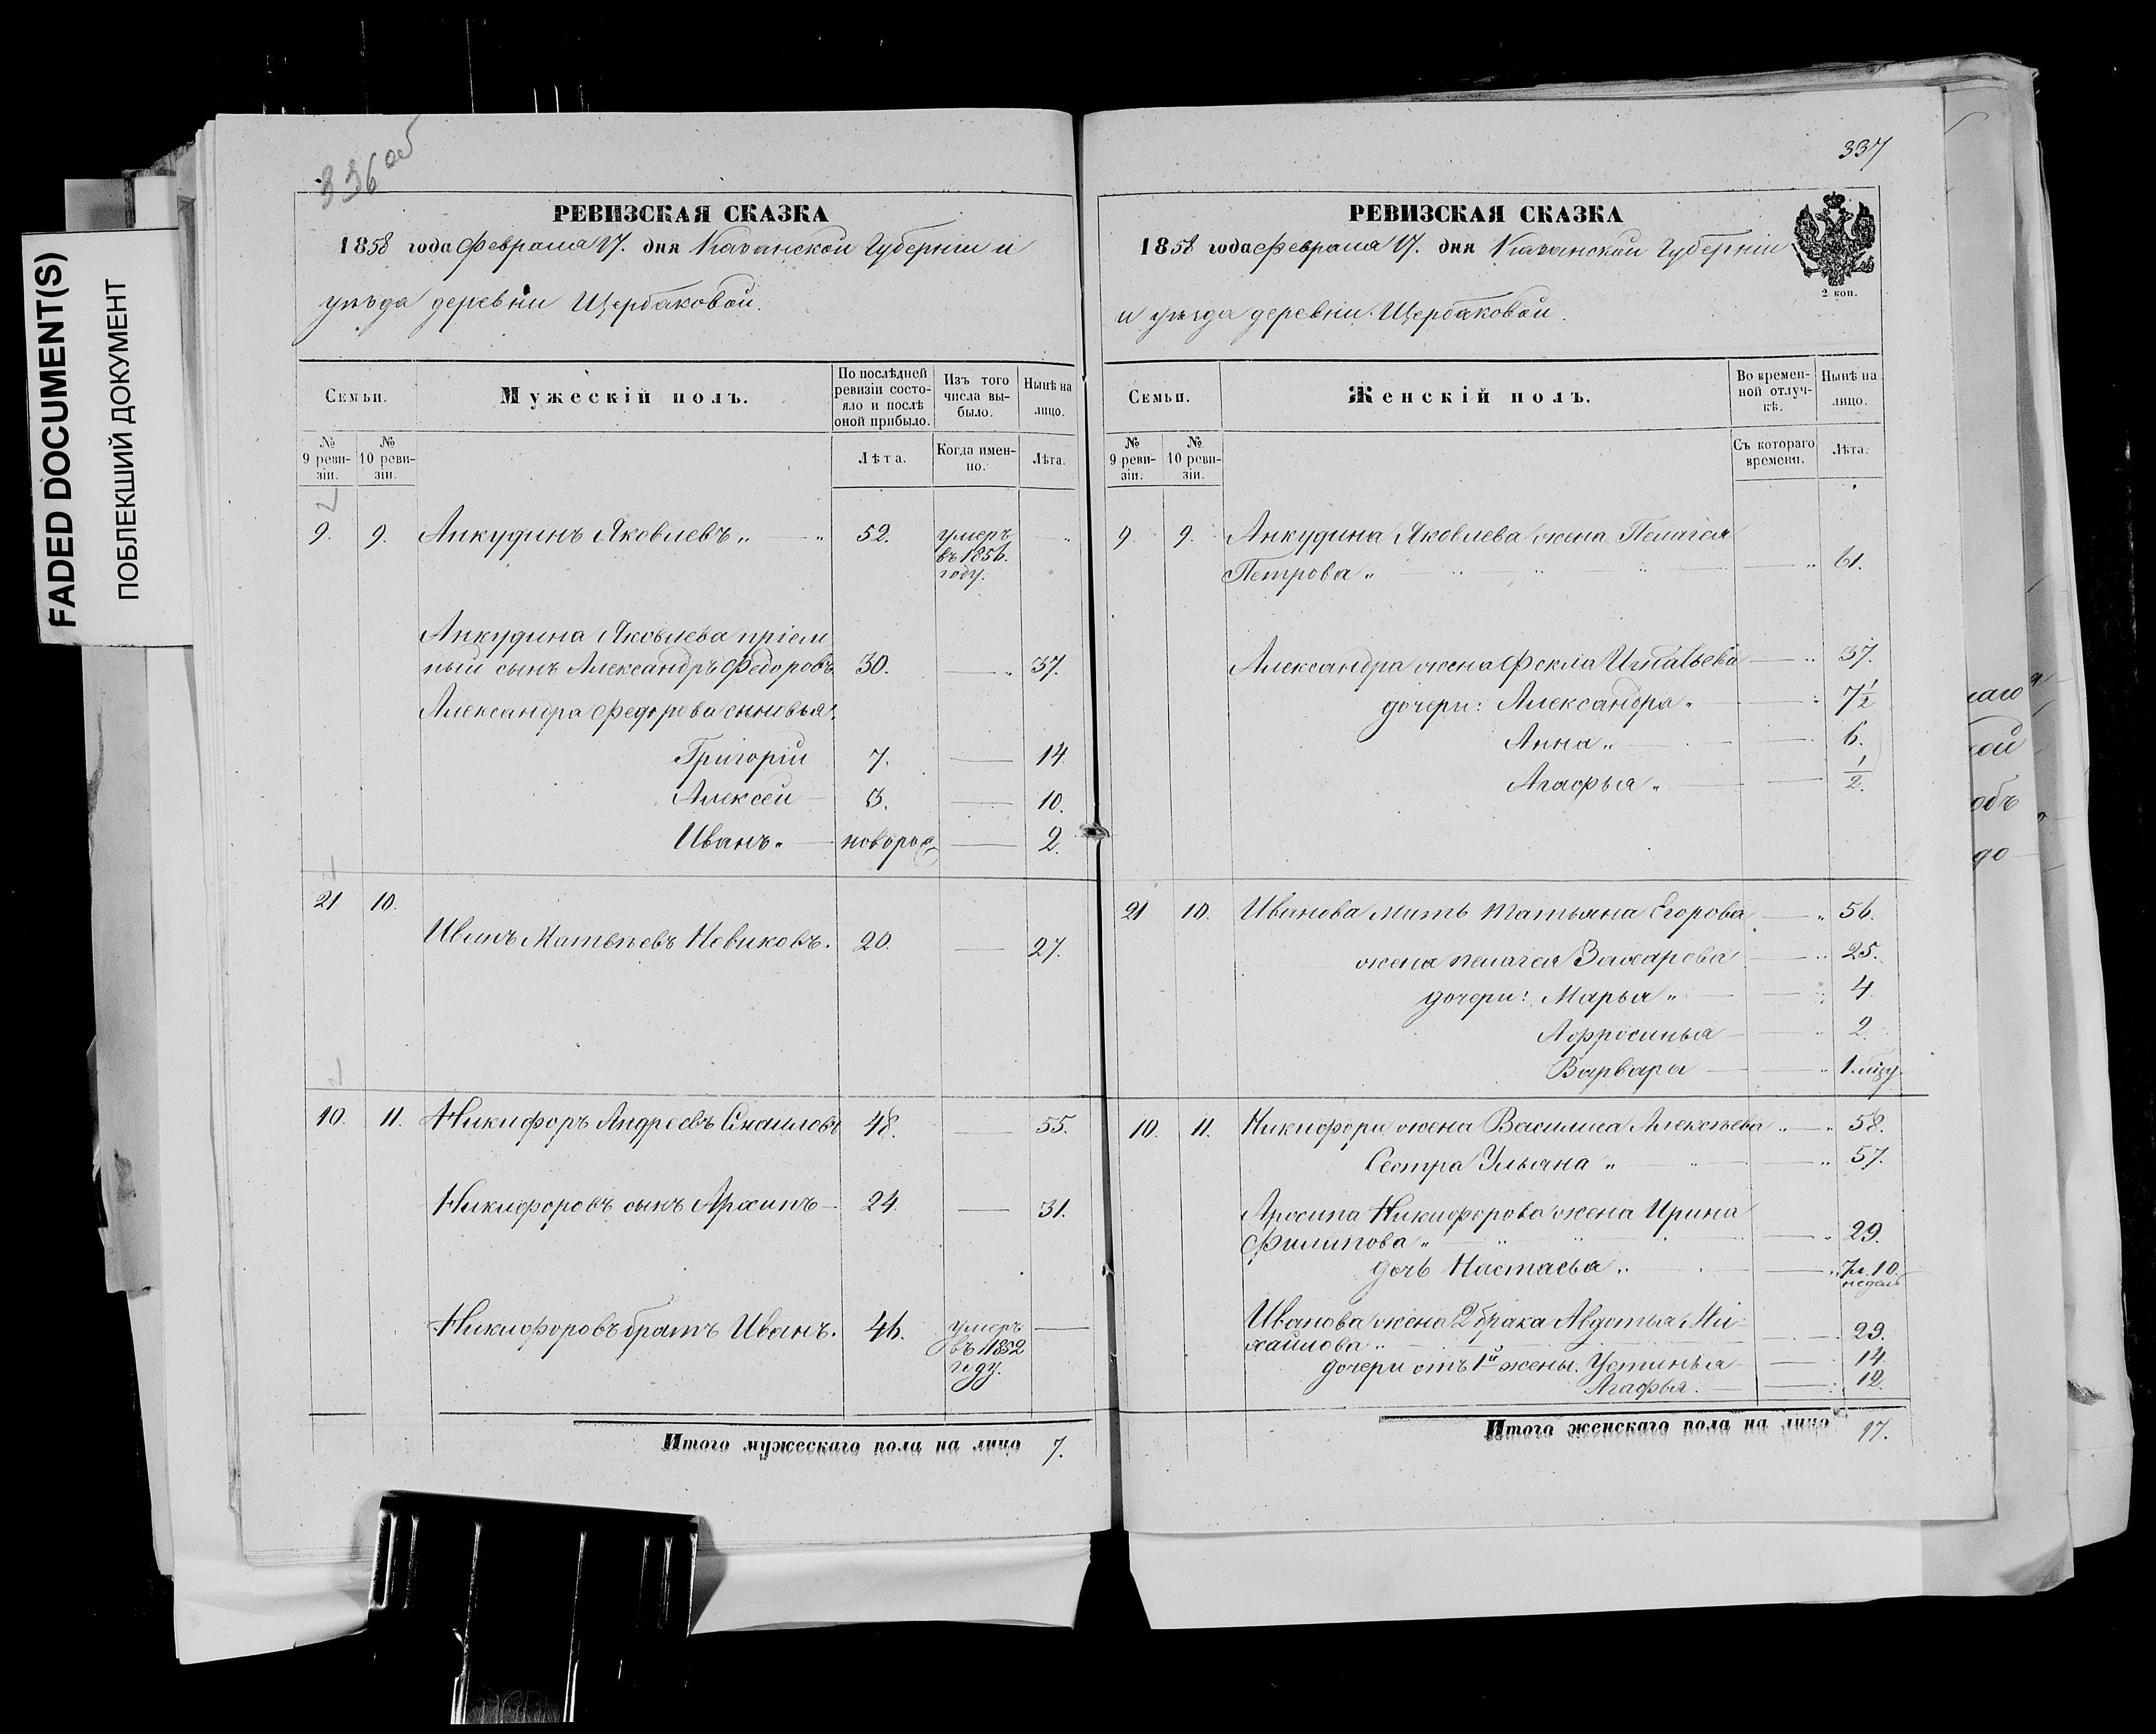 FADED DOCUMENT(S)
ПОБЛЕКШИЙ ДОКУМЕНТ
336 об
РЕВИЗСКАЯ СКАЗКА
1858 года Февраля 17. дня Казанской Губерніи и
уѣзда деревни Щербаковой.
Семьи.
Мужескій полъ.
По послѣдней ревизіи состояло и послѣ оной прибыло.
Изъ того числа выбыло.
Нынѣ на лицо.
№ 9 ревизіи.
№ 10 ревизіи.
Лѣта.
Когда именно.
Лѣта.
9. 9. Анкудинъ Яковлевъ „ — „ 52. умеръ въ 1856. году. — „
Анкудина Яковлева пріем
ный сынъ Александръ Федоровъ 30. — „ 37.
Александра Федорова сыновья:
Григорій 7. — 14.
Алексей — 3. — 10.
Иванъ „ — новорож — 2.
21 10.
Иванъ Матвѣевъ Новиковъ. 20. — 27.
10. 11. Никифоръ Андреевъ 48. — 55.
Никифоровъ сынъ Архипъ — 24. — 31.
Никифоровъ братъ Иванъ. 46. умеръ въ 1852 году. —
Итого мужескаго пола на лицо 7.
337
РЕВИЗСКАЯ СКАЗКА
1858 года Февраля 17. дня Казанской Губерніи
и уѣзда деревни Щербаковой.
2 коп.
Семьи.
Женскій полъ.
Во временной отлучкѣ.
Нынѣ на лицо.
№ 9 ревизіи.
№ 10 ревизіи.
Съ котораго времени.
Лѣта.
9. 9. Анкудина Яковлева жена Пелагея
Петрова „ — „ 61.
Александра жена Фекла Игнатьева — „ 37.
дочери: Александра „ — 7½
Анна „ — 6.
Агафья „ — ½.
21 10. Иванова мать Татьяна Егорова — „ 56.
жена Пелагея Захарова — „ 25.
дочери: Марья „ — 4
Афросинья — „ 2.
Варвара — „ 1.
10. 11. Никифора жена Василиса Алексѣева „ — „ 58.
Сестра Ульяна „ — „ 57.
Архипа Никифорова жена Ирина
Филипова „ — „ 29.
дочь Настасья „ — „ 10. недель
Иванова жена 2 брака Авдотья Ми-
хайлова „ — 29.
дочери отъ 1й жены. Устинья — 14.
Агафья. — 12.
Итого женскаго пола на лицо 17.